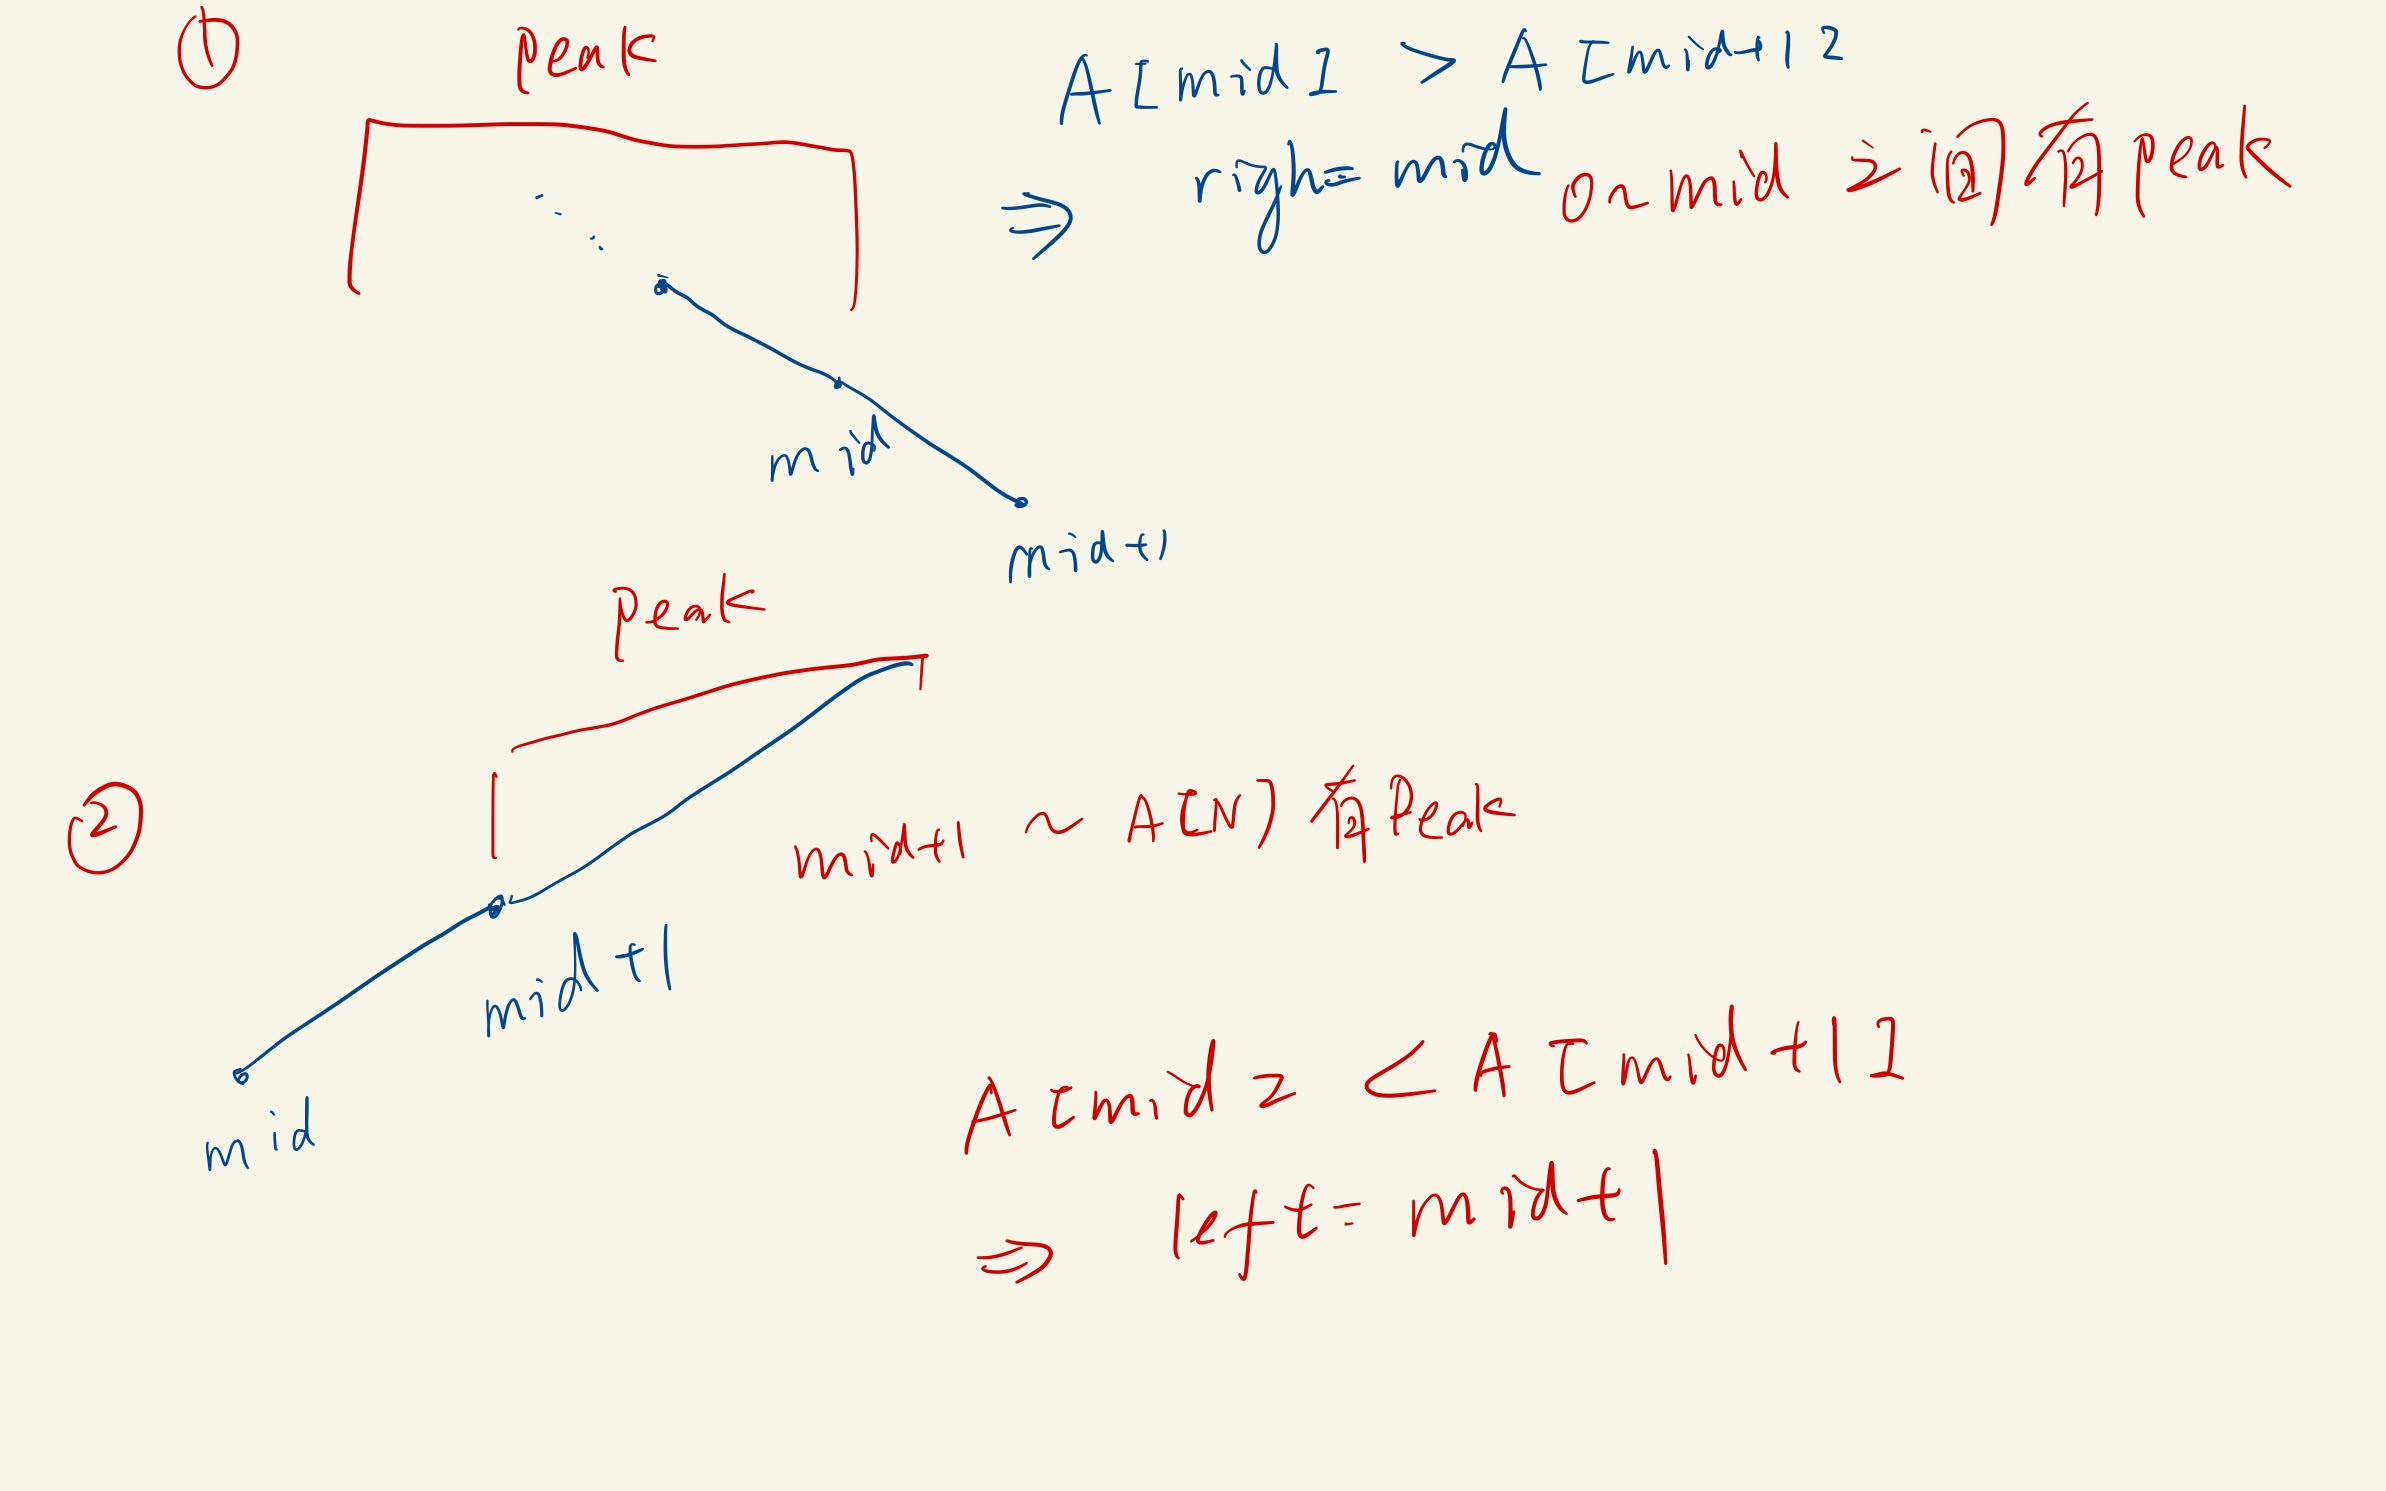 ① peak
A[mid] > A[mid+1]
⇒ right=mid
0~mid 之间有peak
mid
mid+1
peak
②
mid+1 ~ A[N] 有Peak
mid+1
mid
A[mid] < A[mid+1]
⇒ left=mid+1